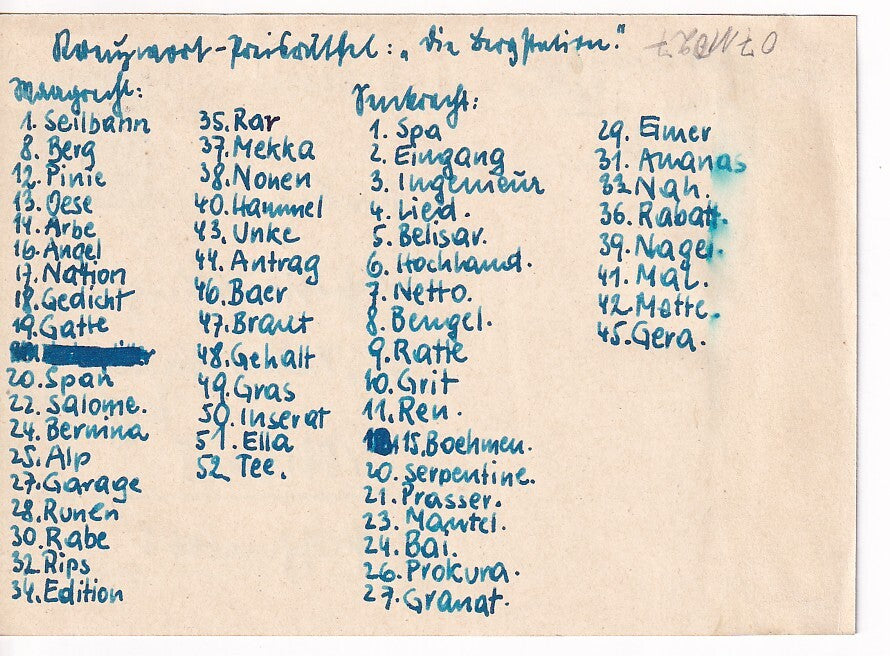 Kreuzwort-Preisrätsel: „Die Bergstation."
Waagrecht:
1. Seilbahn
8. Berg
12. Pinie
13. Oese
14. Arbe
16. Angel
17. Nation
18. Gedicht
19. Gatte
20. Span
22. Salome.
24. Bernina
25. Alp
27. Garage
28. Runen
30. Rabe
32. Rips
34. Edition
35. Rar
37. Mekka
38. Nonen
40. Hammel
43. Unke
44. Antrag
46. Baer
47. Braut
48. Gehalt
49. Gras
50. Inserat
51. Ella
52. Tee.
Senkrecht:
1. Spa
2. Eingang
3. Ingenieur
4. Lied.
5. Belisar.
6. Hochland.
7. Netto.
8. Bengel.
9. Ratte
10. Grit
11. Ren.
15. Boehmen.
20. Serpentine.
21. Prasser.
23. Mantel.
24. Bai.
26. Prokura.
27. Granat.
29. Eimer
31. Ananas
33. Nah.
36. Rabatt.
39. Nagel.
41. Mal.
42. Matte.
45. Gera.